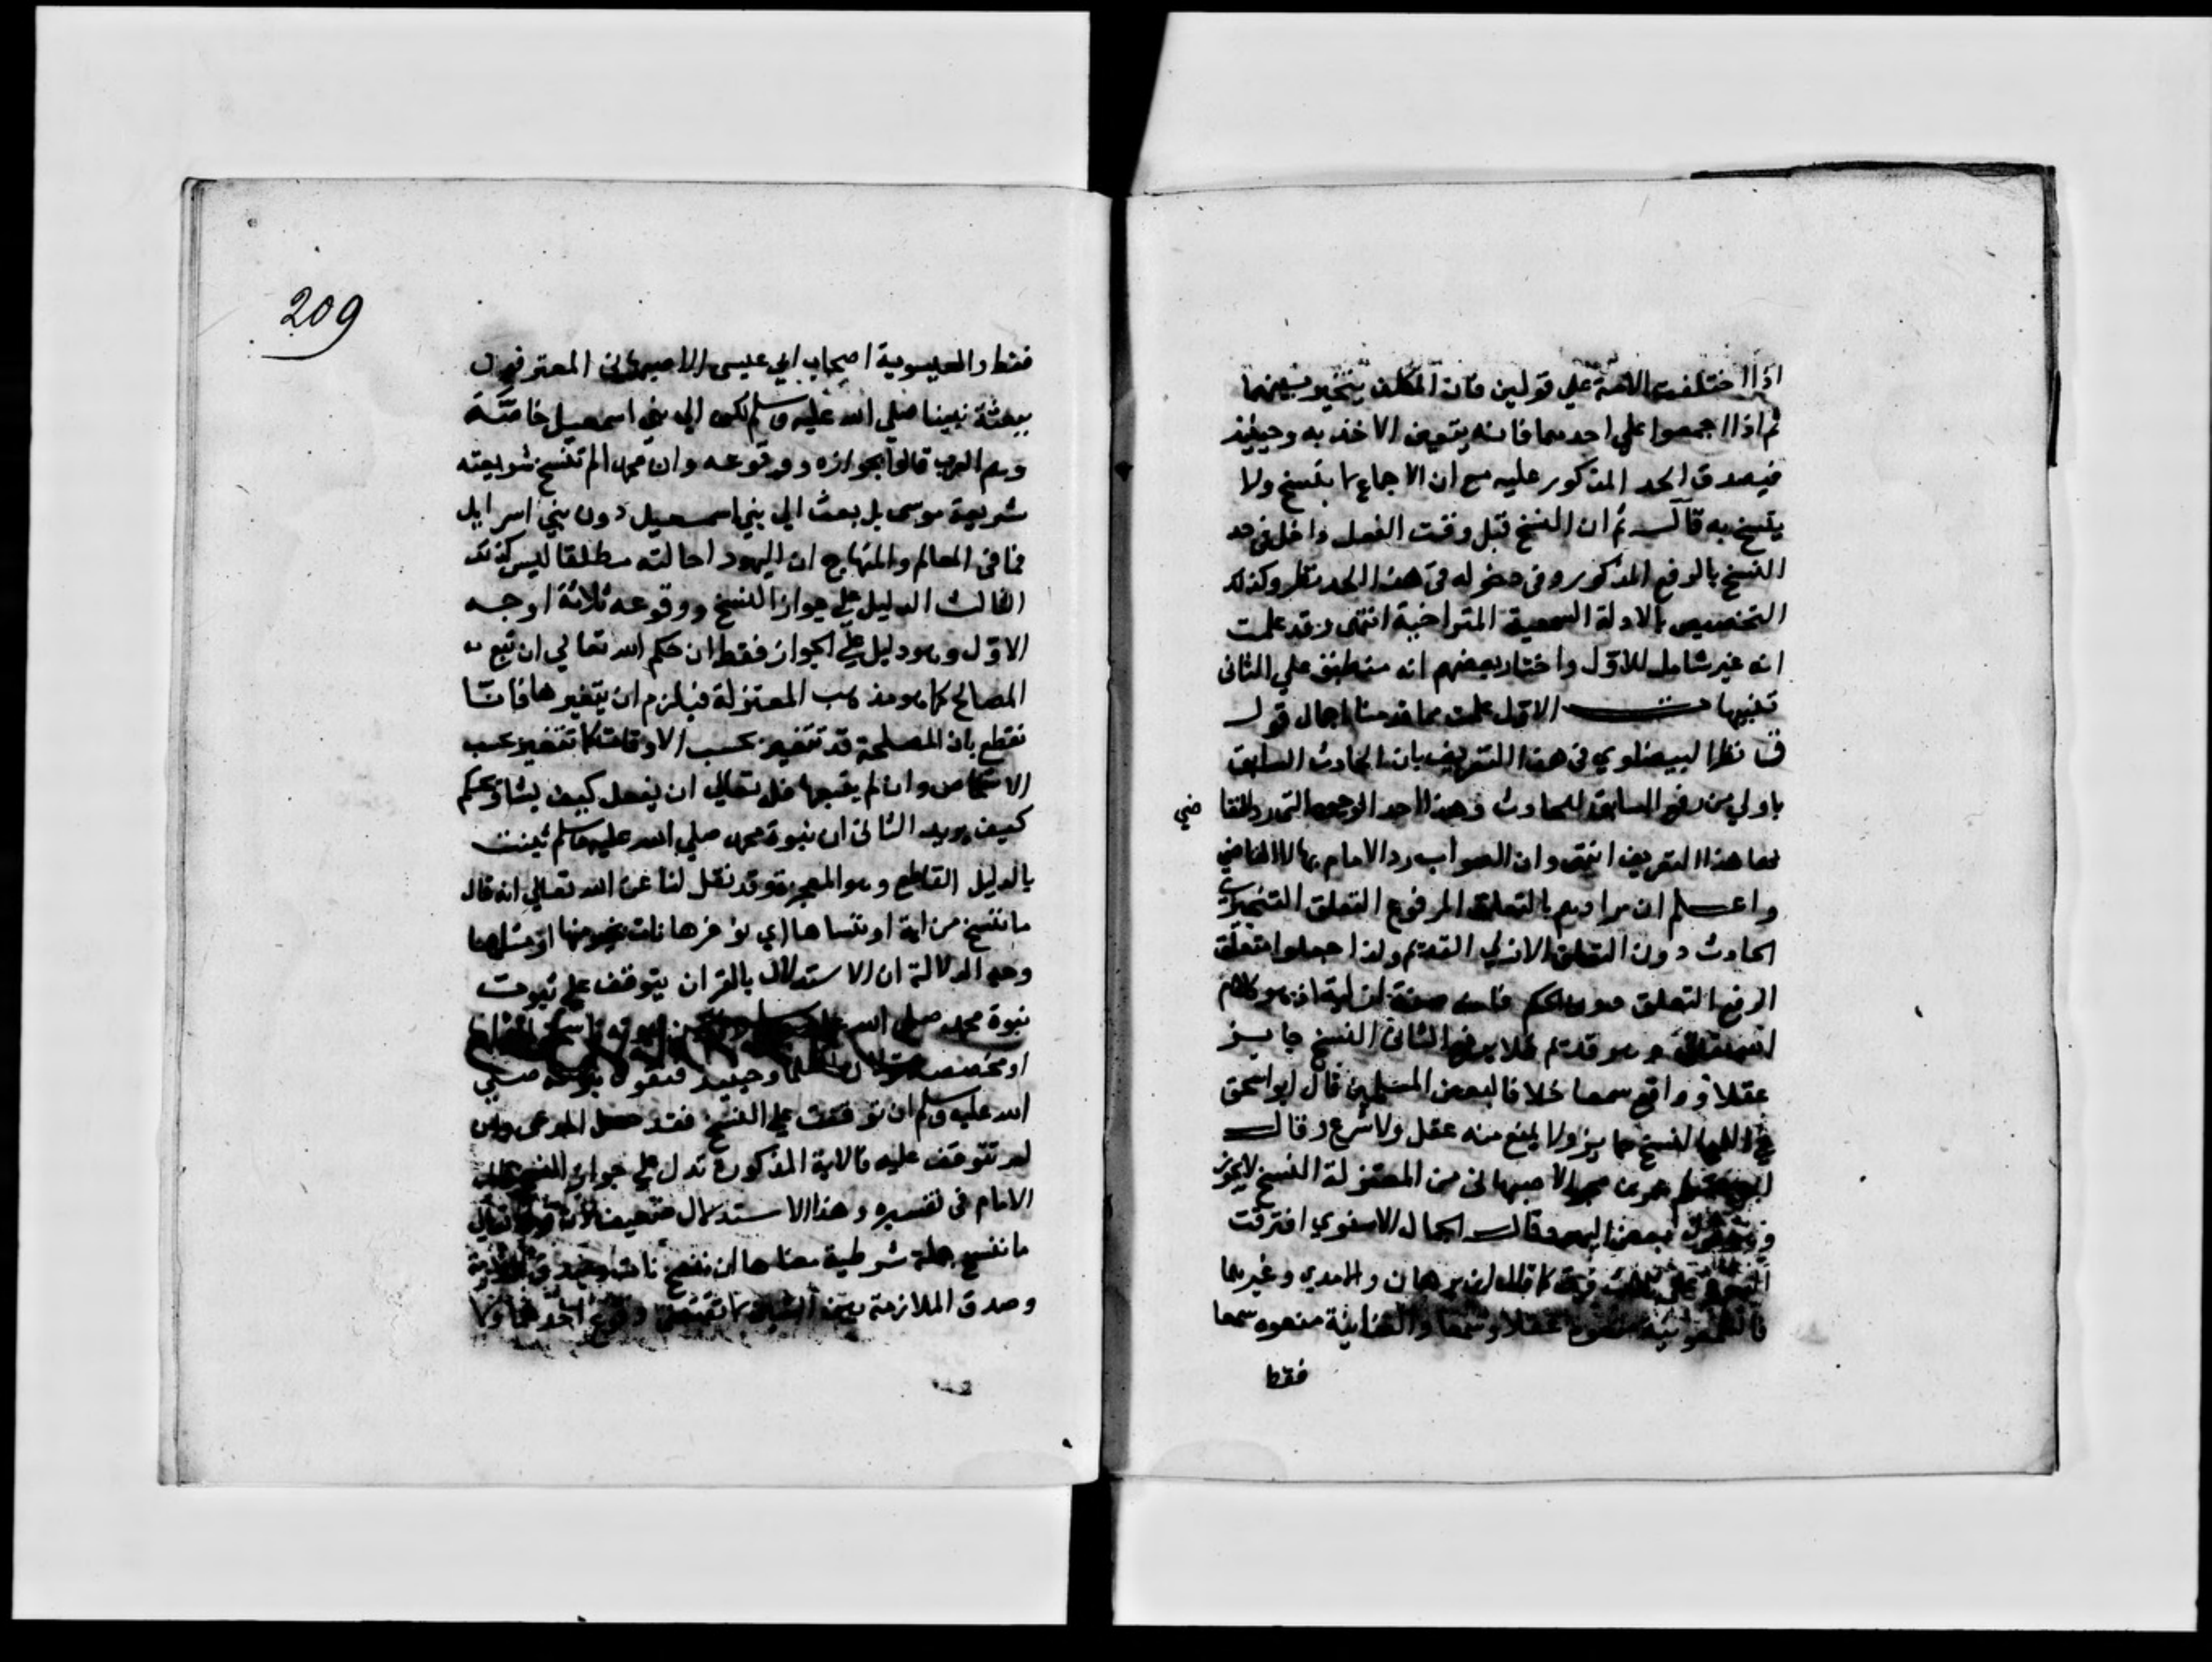 اذا اختلفت الامة علي قولين فان المكلف يتخير بينهما
ثم اذا اجمعوا علي احدهما فانه يتعين الاخذ به وحينئذ
فيصدق الحد المذكور عليه مع ان الاجماع لا ينسخ ولا
ينسخ به قال ثم ان النسخ قبل وقت الفعل داخل في حد
النسخ بالرفع المذكور وفي دخوله في هذا الحد نظر وكذلك
التخصيص بالادلة السمعية المتراخية انتهى وقد علمت
انه غير شامل للاول واختار بعضهم انه منطبق علي الثاني
تنبيهات الاول علمت مما قدمنا اجمال قول
البيضاوي في هذا التعريف بان الحادث السابق
باولي من رفع السابق للحادث وهذا احد الاوجه التي رد القا
ضي
بها هذا التعريف انتهى وان الصواب رد الامام بها لا القاضي
واعلم ان مرادهم بالتعلق المرفوع التعلق التنجيزي
الحادث دون التعلق الازلي القديم ولذا جعلوا متعلق
الرفع التعلق دون الحكم فانه صفة ازلية اذ هو كلام
الله تعالى وهو قديم فلا يرفع الثاني النسخ جايز
عقلا وواقع سمعا خلافا لبعض المسلمين قال ابو اسحق
في اللمع النسخ جايز ولا يمنع منه عقل ولا شرع وقال
ابو مسلم عمرو بن بحر الاصبهاني من المعتزلة النسخ لا يجوز
بعض اليهود وقال الجمال الاسنوي افترقت
اليهود على ثلاث فرق كما قاله ابن برهان والامدي وغيرهما
فالشمعونية منعوه عقلا وسمعا والعنانية منعوه سمعا
فقط
209
فقط والعيسوية اصحاب ابي عيسى الاصبهاني المعترفون
ببعثة نبينا صلي الله عليه وسلم لكن الي بني اسمعيل خاصة
وهم العرب قالوا بجوازه ووقوعه وان محمدا لم تنسخ شريعته
شريعة موسى بل بعث الي بني اسمعيل دون بني اسرايل
فما في المعالم والمنهاج ان اليهود احالته مطلقا ليس كذلك
الثالث الدليل علي جواز النسخ ووقوعه ثلاثة اوجه
الاول وهو دليل علي الجواز فقط ان حكم الله تعالي ان تبع
المصالح كما هو مذهب المعتزلة فيلزم ان يتغير بتغيرها فانا
نقطع بان المصلحة قد تتغير بحسب الاوقات كما تتغير بحسب
الاشخاص وان لم يتبعها فله تعالي ان يفعل كيف يشا ويحكم
كيف يريد الثاني ان نبوة محمد صلي الله عليه وسلم ثبتت
بالدليل القاطع وهو المعجزة وقد نقل لنا عن الله تعالي انه قال
ما ننسخ من اية او ننساها اي نوخرها نات بخير منها او مثلها
وجه الدلالة ان الاستدلال بالقران يتوقف علي ثبوت
نبوة محمد صلي الله
وحينئذ فنقول نبوته صلي
الله عليه وسلم ان توقفت علي النسخ فقد حصل المدعى وان
لم تتوقف عليه فالاية المذكورة تدل علي جواز النسخ قال
الامام في تفسيره وهذا الاستدلال ضعيف لان قوله تعالي
ما ننسخ جملة شرطية معناها ان ننسخ نات
وصدق الملازمة بين الشيئين لا تقتضي وقوع احدهما